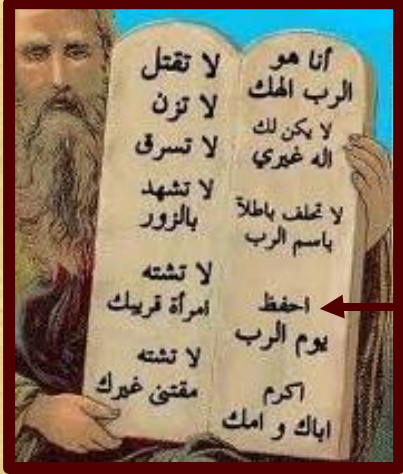 أنا هو
الرب الهك
لا يكن لك
اله غيري
لا تحلف باطلاً
باسم الرب
احفظ
يوم الرب
اكرم
اباك و امك
لا تقتل
لا تزن
لا تسرق
لا تشهد
بالزور
لا تشته
امرأة قريبك
لا تشته
مقتنى غيرك